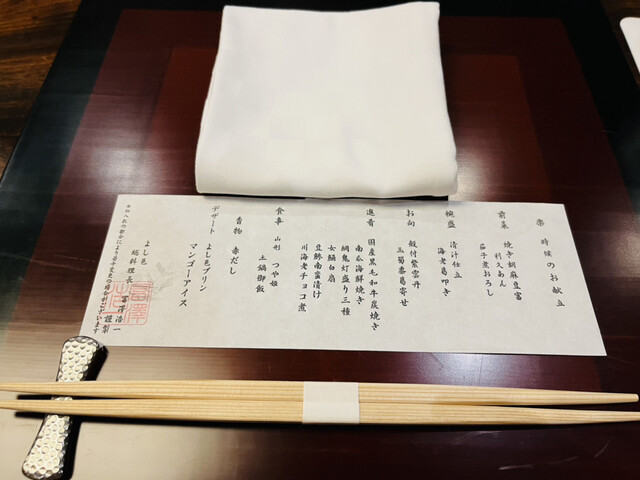 楽 時候のお献立
前菜 焼き胡麻豆富
利久あん
茄子煮おろし
椀盛 清汁仕立
海老葛叩き
お向 殻付紫雲丹
玉蜀黍葛寄せ
進肴 国産黒毛和牛炭焼き
南瓜海鮮焼き
鯛鬼灯盛り三種
女鰯白扇
豆鯵南蛮漬け
川海老チョコ煮
食事 山形 つや姫
土鍋御飯
香物 赤だし
デザート よし邑プリン
マンゴーアイス
よし邑
総料理長 冨澤浩一
謹製